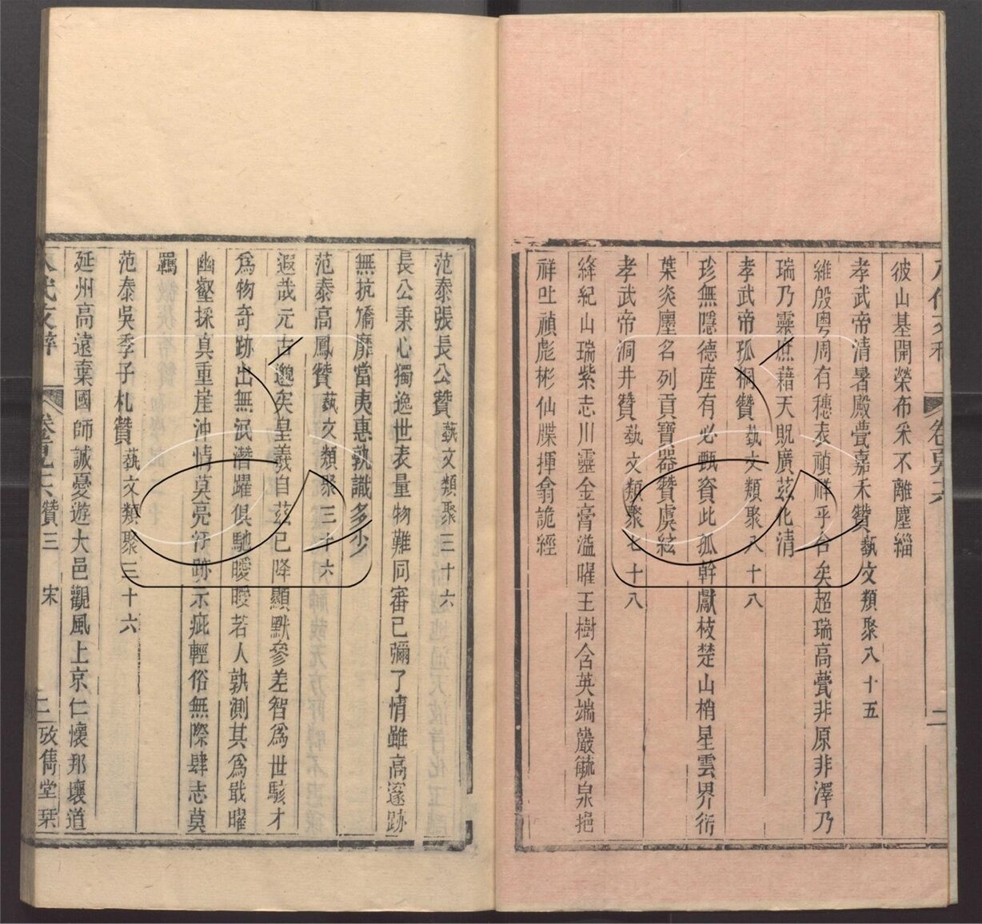 彼山基開榮布釆不離塵緇
孝武帝清暑殿甍嘉禾贊 藝文類聚八十五
維殷粵周有穗表禎祥乎台矣超瑞高甍非原非澤乃
瑞乃靈憮藉天貺廣茲化清
孝武帝孤桐贊 藝文類聚八十八
珍無隱德產有必甄資此孤幹獻枝楚山梢星雲界衍
葉炎廛名列貢寶器贊虞絃
孝武帝洞井贊 藝文類聚七十八
絳紀山瑞紫志川靈金膏溢曜玉樹含英端巖毓泉挹
祥吐禎彪彬仙牒揮翕詭經
范泰張長公贊 藝文類聚三十六
長公秉心獨逸世表量物難同審已彌了情雖高邃跡
無抗矯靡當夷惠孰識多少
范泰高鳳贊 藝文類聚三十六
遐哉元古邈矣皇羲自茲已降顯默參差智為世駭才
為物奇跡出無泯潛躍俱馳曖曖若人孰測其為戢曜
幽壑採真重崖沖情莫亮汙跡示疵輕俗無際肆志莫
羈
范泰吳季子札贊 藝文類聚三十六
延州高遠棄國師誠憂遊大邑觀風上京仁懷邦壞道
八代文粹 贊三 宋 二 攷雋堂栞